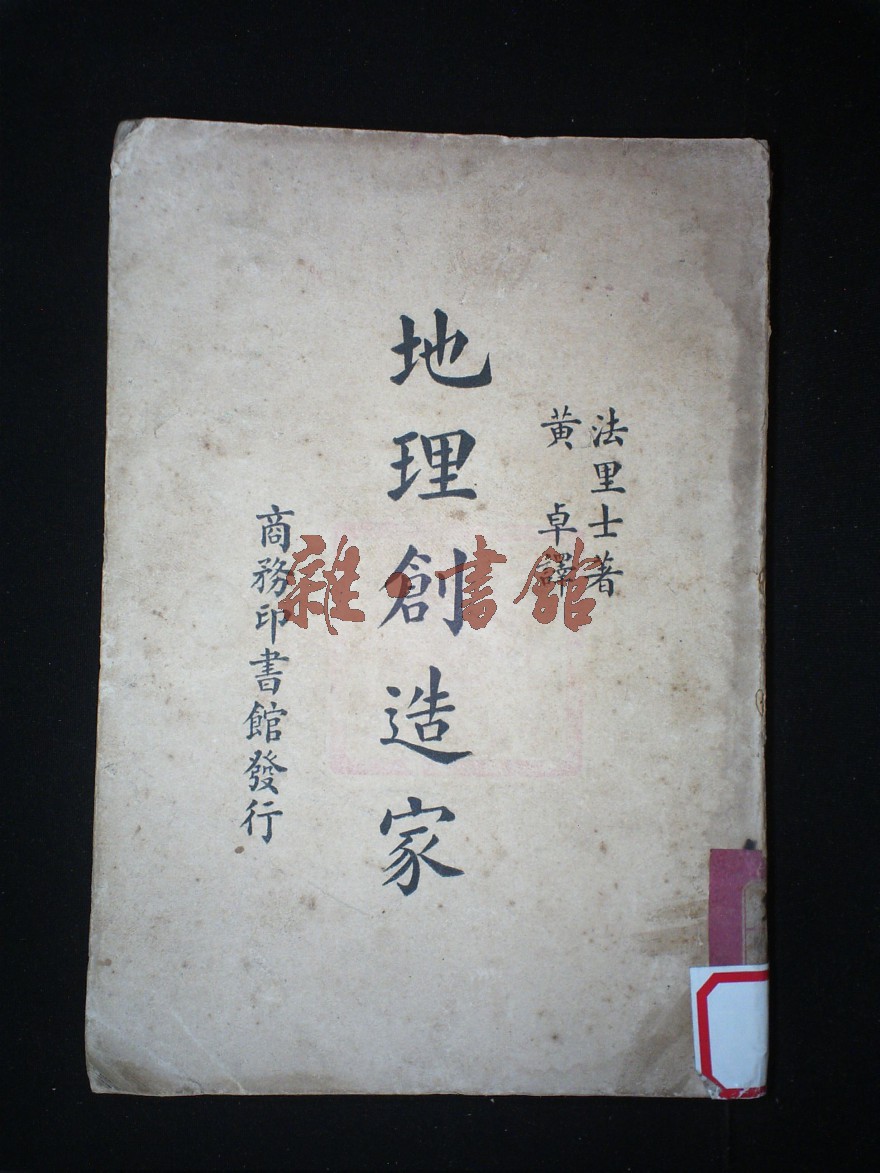 法里士著
黃卓譯
地理創造家
商務印書館發行
雜·書館